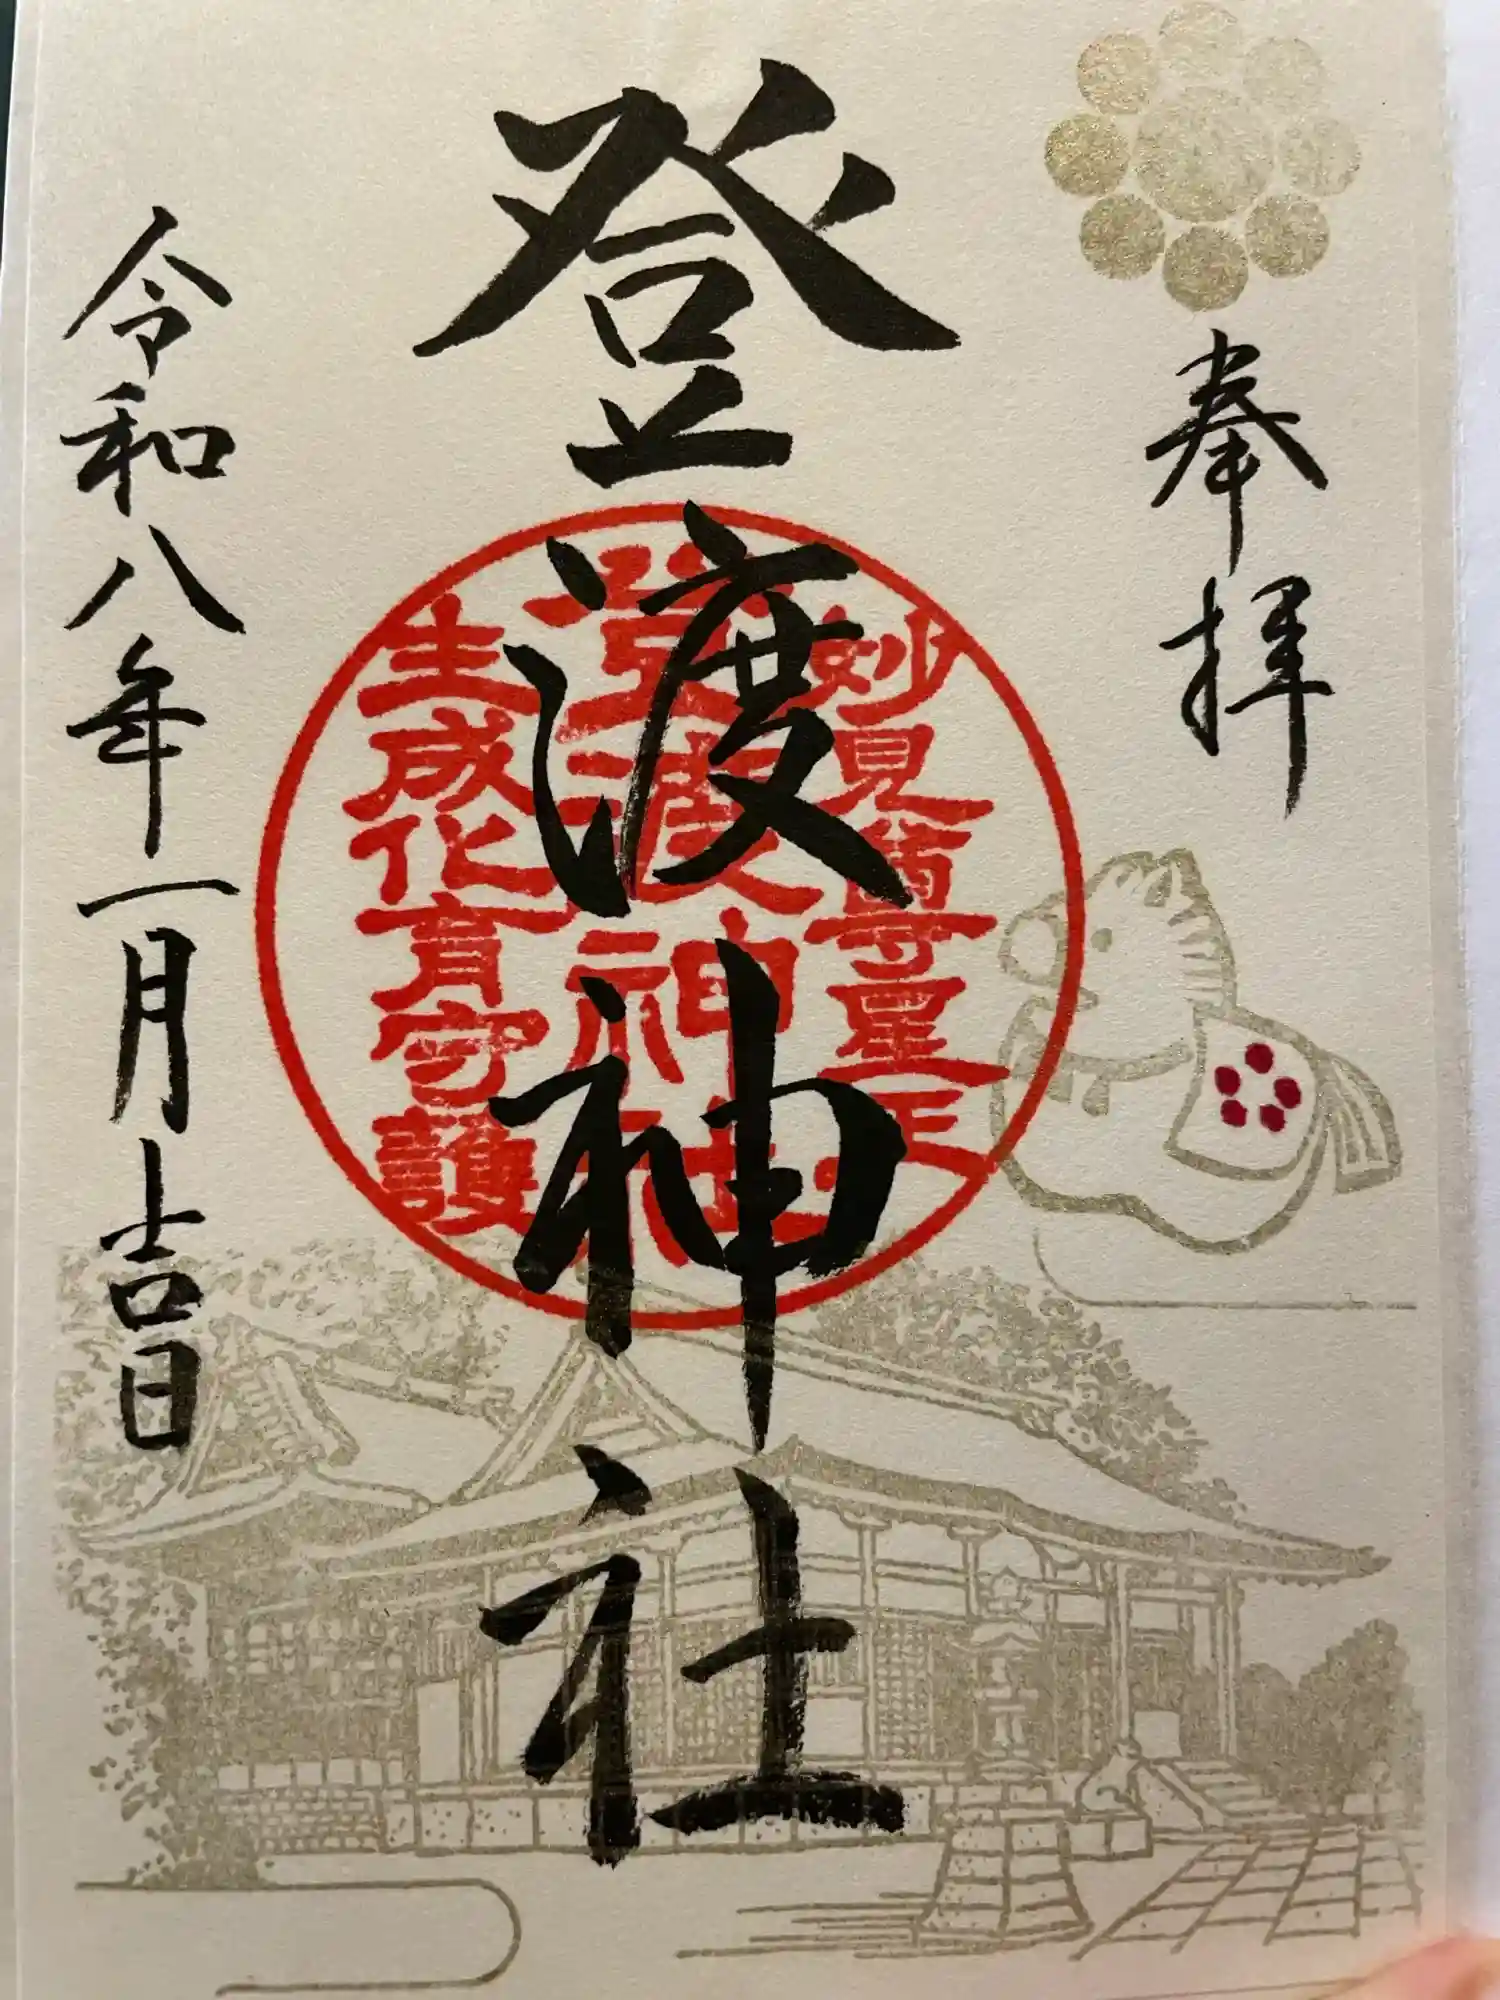 奉拝
登渡神社
妙見尊星王
登渡神社
生成化育守護
令和八年一月吉日